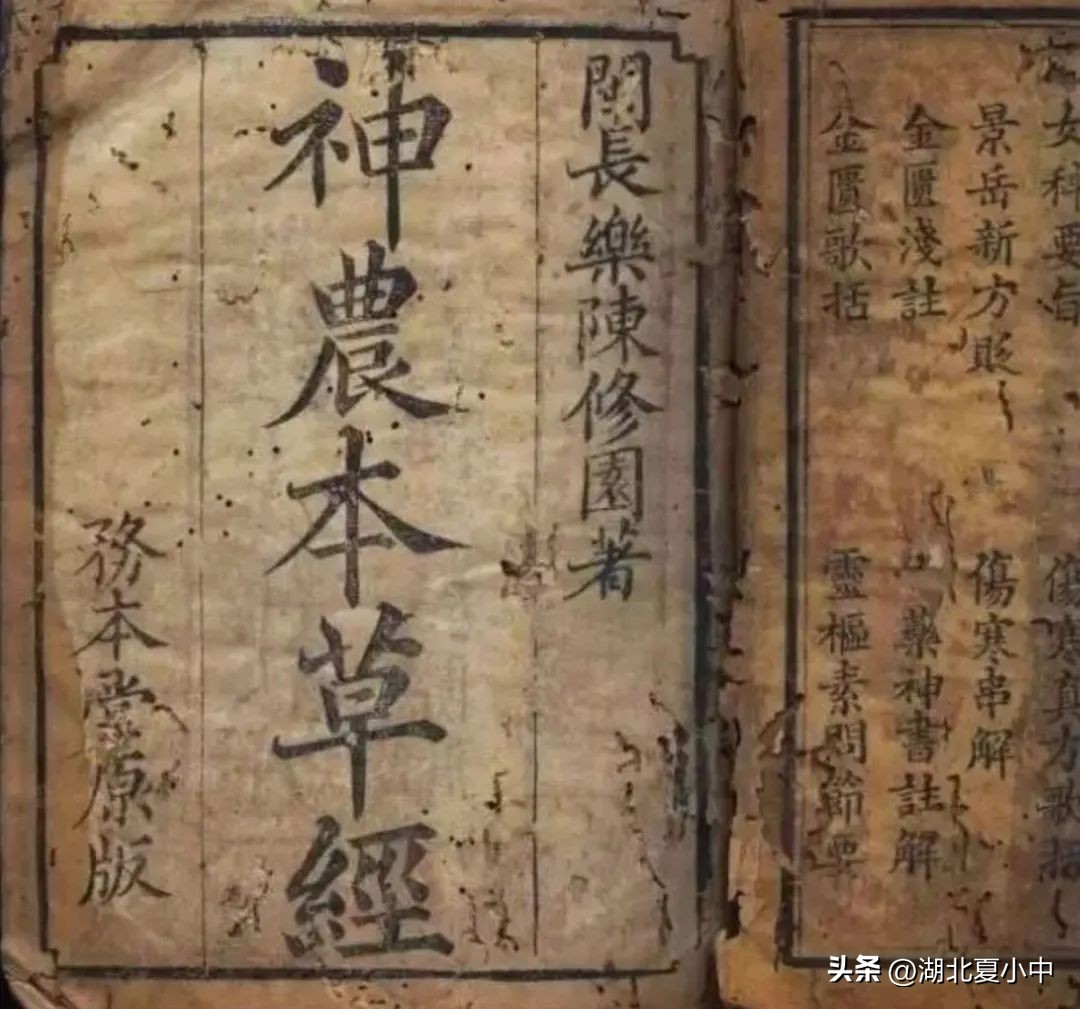 女科要旨 傷寒真方歌括
景岳新方貶 傷寒串解
金匱淺註 藥神書註解
金匱歌括 靈樞素問節要
閩長樂陳修園著
神農本草經
務本堂原版
头条 @湖北夏小中